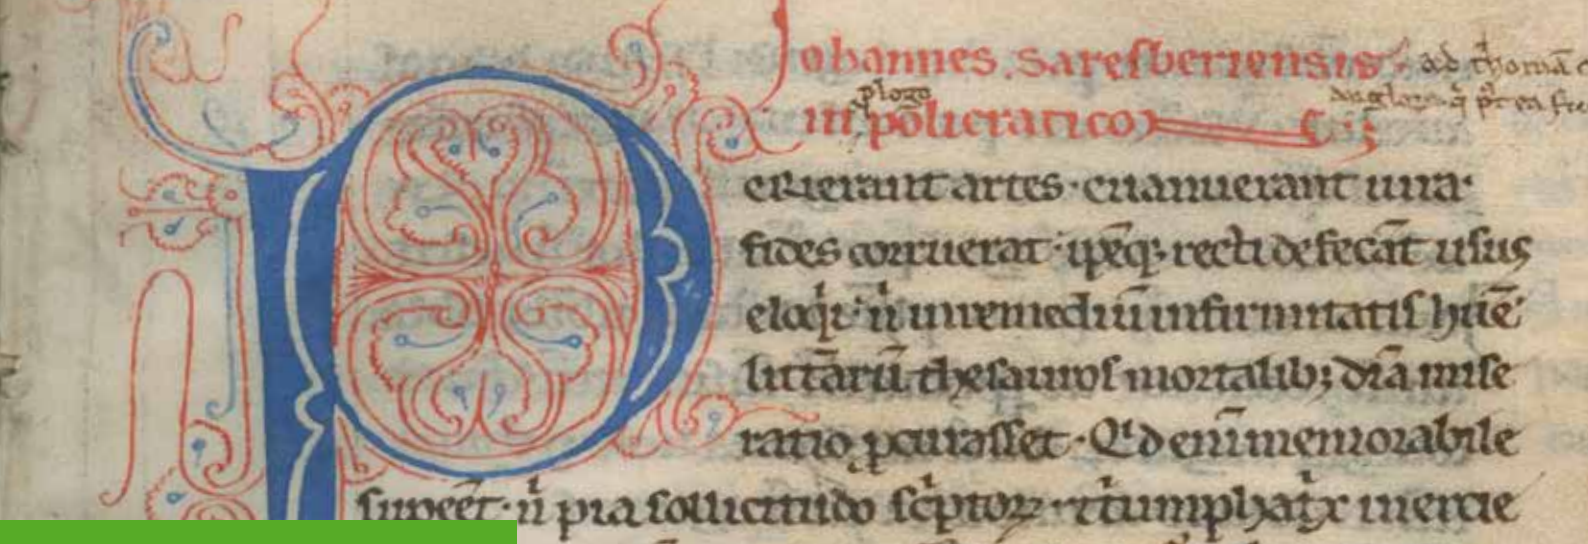 Johannes. Saresberiensis. ad thomā
plogo
in policratico
anglorū
Perierant artes· euanuerant iura·
fides corruerat· ip̄eq; recti defecāt usus
eloq̇i· n̄ in remediū infirmitatis hūē
littārū thesauros mortalib; dīa mise
ratio ꝓcurasset· Qd enī memorabile
supeēt· n̄ pia sollicitudo sc̄ptorꝝ· tͥumphatͥx inercie